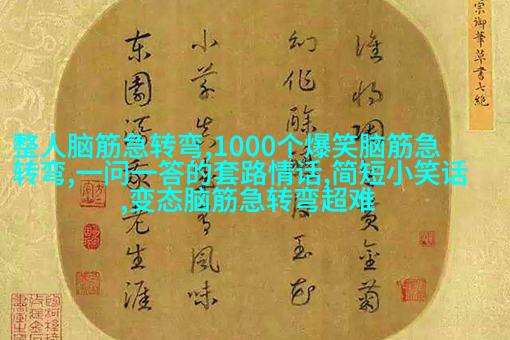 整人脑筋急转弯,1000个爆笑脑筋急
转弯,一问一答的套路情话,简短小笑话
,变态脑筋急转弯超难
宗御筆草書七絕
誰將陶黃金菊
幻作酴玉花
小草真有風味
東園添我老生涯